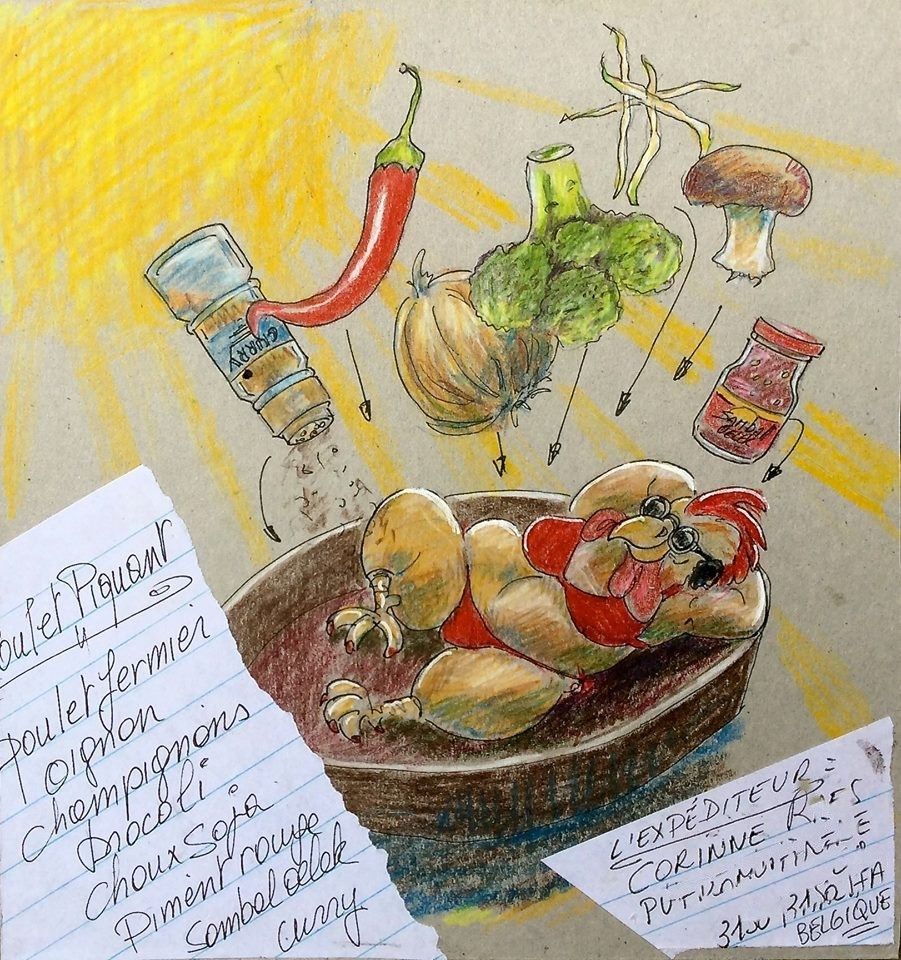 CURRY
Sambal
oelek
Poulet Piquant
poulet fermier
oignon
champignons
brocoli
choux soja
Piment rouge
Sambal oelek
curry
L'EXPÉDITEUR =
CORINNE
BELGIQUE